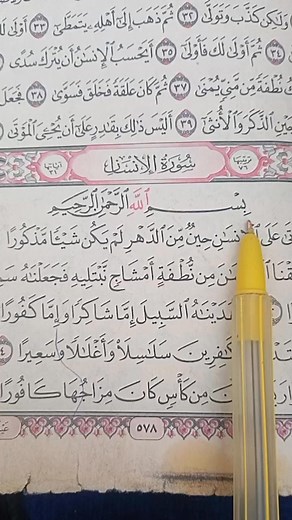 وَلَٰكِن كَذَّبَ وَتَوَلَّىٰ ٣٢ ثُمَّ ذَهَبَ إِلَىٰٓ أَهْلِهِۦ يَتَمَطَّىٰٓ ٣٣ أَوْلَىٰ
ثُمَّ أَوْلَىٰ لَكَ فَأَوْلَىٰٓ ٣٥ أَيَحْسَبُ ٱلْإِنسَٰنُ أَن يُتْرَكَ سُدًى
نُطْفَةً مِّن مَّنِيٍّ يُمْنَىٰ ٣٧ ثُمَّ كَانَ عَلَقَةً فَخَلَقَ فَسَوَّىٰ ٣٨ فَجَعَلَ
ٱلذَّكَرَ وَٱلْأُنثَىٰٓ ٣٩ أَلَيْسَ ذَٰلِكَ بِقَٰدِرٍ عَلَىٰٓ أَن يُحْـِۧيَ ٱلْمَوْتَىٰ
ترتيبها ٧٦ سُورَةُ الإِنسَانِ آياتها ٣١
بِسْمِ ٱللَّهِ ٱلرَّحْمَٰنِ ٱلرَّحِيمِ
عَلَى ٱلْإِنسَٰنِ حِينٌ مِّنَ ٱلدَّهْرِ لَمْ يَكُن شَيْـًٔا مَّذْكُورًا
مِن نُّطْفَةٍ أَمْشَاجٍ نَّبْتَلِيهِ فَجَعَلْنَٰهُ
ٱلسَّبِيلَ إِمَّا شَاكِرًا وَإِمَّا كَفُورًا
سَلَٰسِلَا۟ وَأَغْلَٰلًا وَسَعِيرًا ٤
مِن كَأْسٍ كَانَ مِزَاجُهَا كَافُورًا
٥٧٨